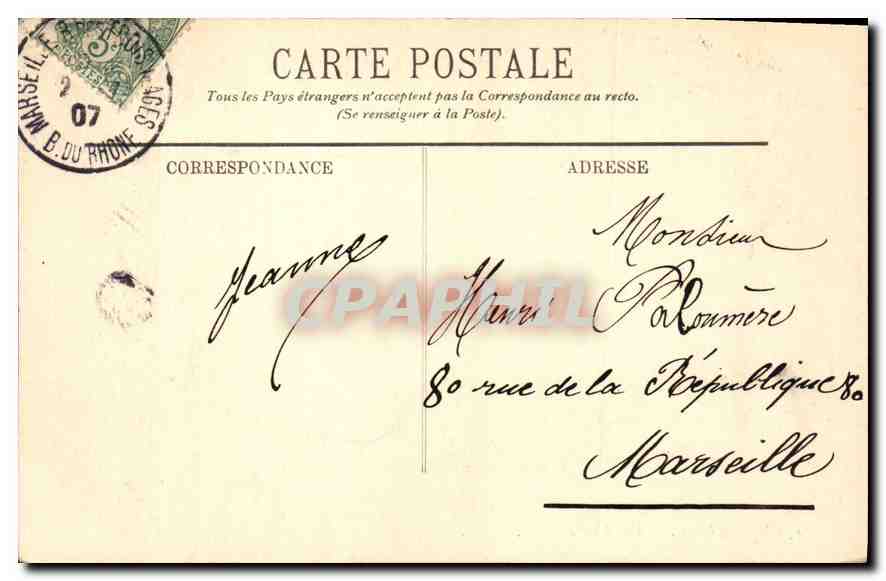 CARTE POSTALE
Tous les Pays étrangers n'acceptent pas la Correspondance au recto.
(Se renseigner à la Poste).
MARSEILLE
07
B. DU RHONE
5
CORRESPONDANCE
ADRESSE
Jeanne
Monsieur
Henri Paloumère
80 rue de la République 80
Marseille
CPAPHIL